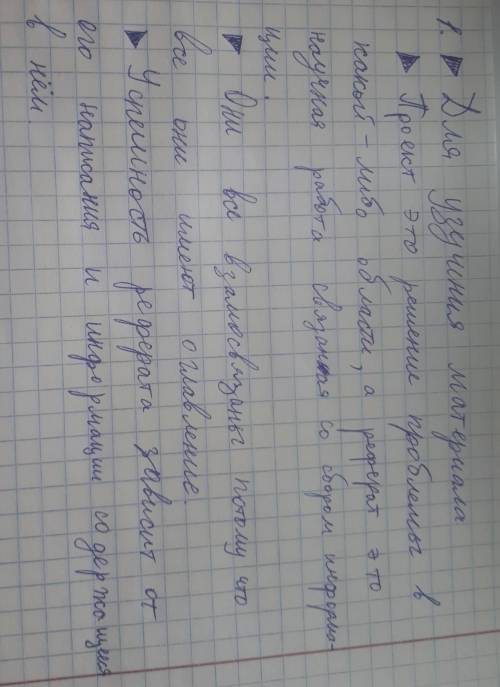 1. ▶ Для узучиния материала
▶ Проект это решение проблемы в
какой-либо области, а реферат это
научная работа связанная со сбором информа-
ции.
▶ Они все взамосвязаны потому что
все они имеют оглавление.
▶ Успешность реферата зависит от
его написания и информации содержащия
в нём.